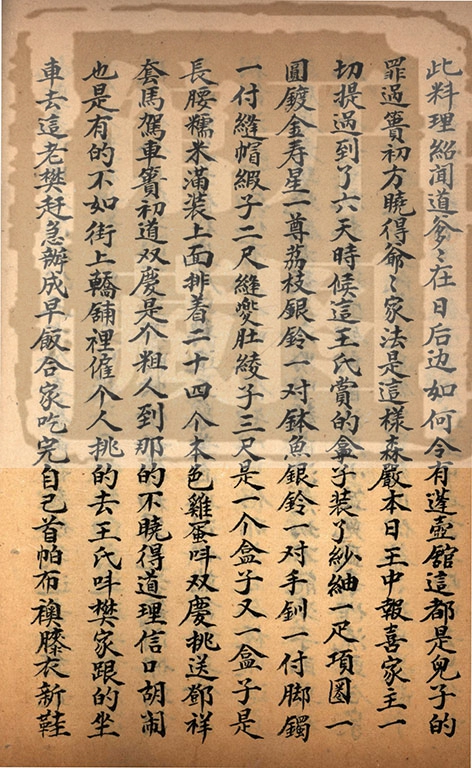 此料理紹聞道爹〻在日后边如何令有蓬壺館這都是兒子的
罪過簣初方曉得爺〻家法是這樣森嚴本日王中報喜家主一
切提過到了六天時候這王氏賞的盒子装了紗紬一疋項圈一
圓鍍金寿星一尊荔枝銀鈴一对鉢魚銀鈴一对手釧一付脚鐲
一付縫帽緞子二尺縫兜肚綾子三尺是一个盒子又一盒子是
長腰糯米滿装上面排着二十四个本色雞蛋呌双慶挑送鄧祥
套馬駕車簣初道双慶是个粗人到那的不曉得道理信口胡闹
也是有的不如街上轎鋪裡僱个人挑的去王氏呌樊家跟的坐
車去這老樊赶急辦成早飯合家吃完自己首帕布襖膝衣新鞋